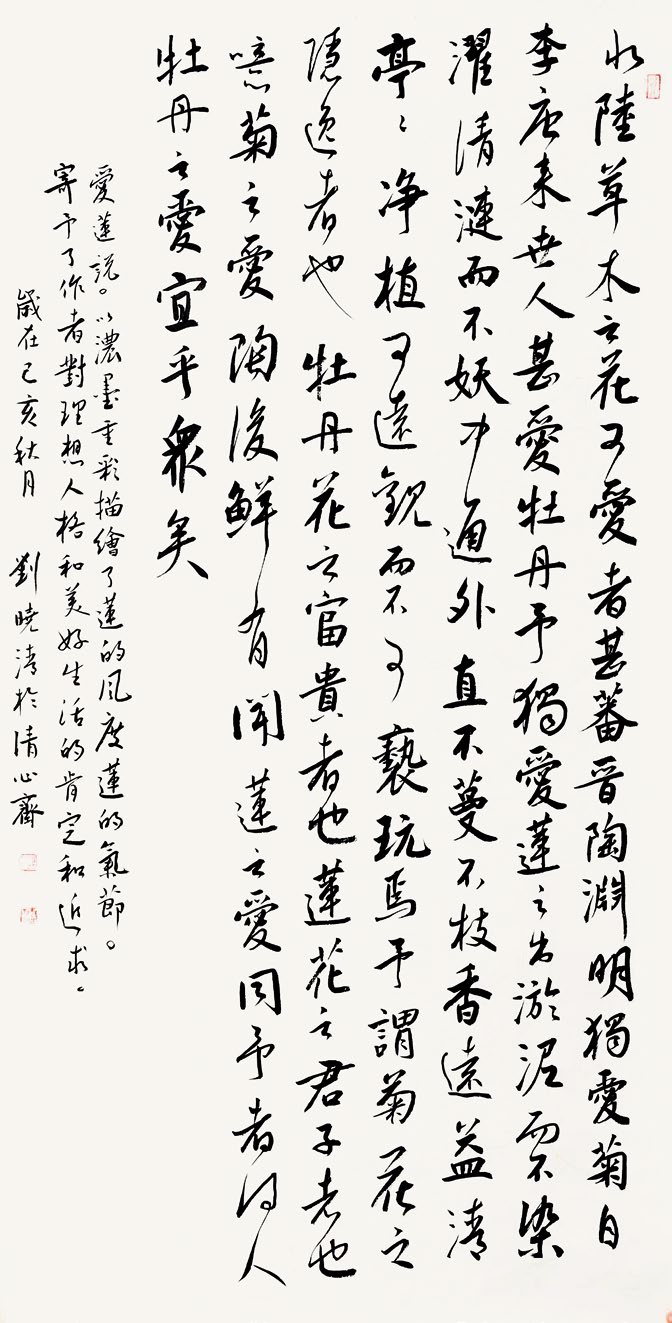 水陸草木之花可愛者甚蕃晋陶淵明獨愛菊自
李唐来世人甚愛牡丹予獨愛蓮之出淤泥而不染
濯清漣而不妖中通外直不蔓不枝香遠益清
亭〻净植可遠觀而不可褻玩焉予謂菊花之
隱逸者也牡丹花之富貴者也蓮花之君子者也
噫菊之愛陶後鮮有聞蓮之愛同予者何人
牡丹之愛宜乎衆矣
愛蓮説。以濃墨重彩描繪了蓮的风度蓮的氣節。
寄予了作者對理想人格和美好生活的肯定和追求。
歲在己亥秋月 劉曉清於清心齋